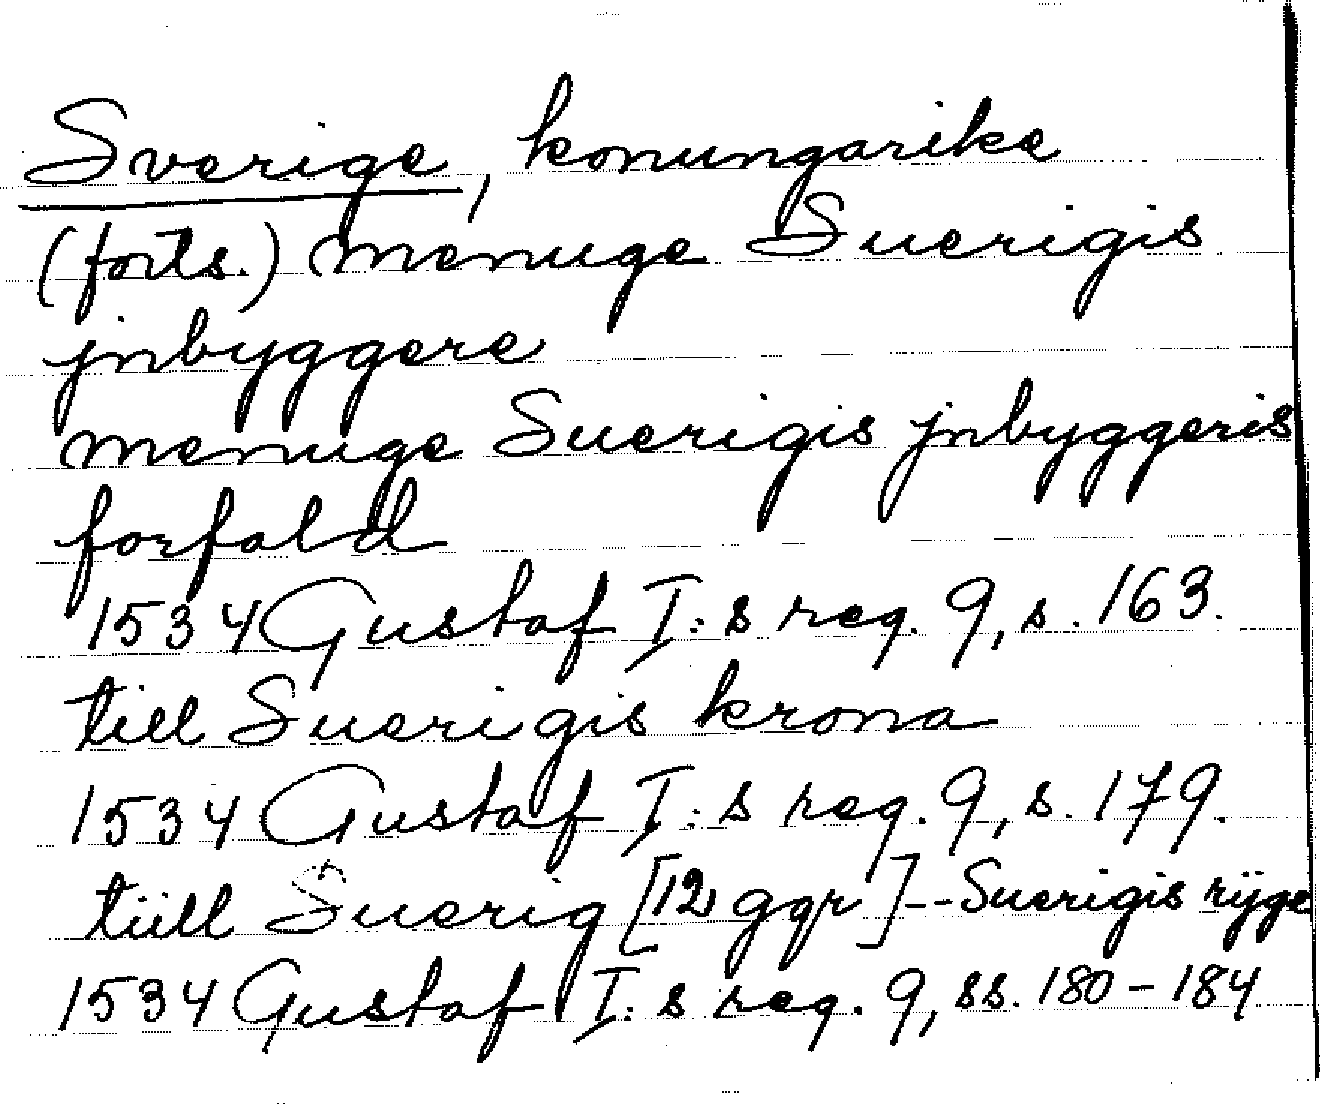 Sverige, konungarike
(forts.) menuge Suerigis
jnbyggere
menuge Suerigis jnbyggeris
forfald
1534 Gustaf I:s reg. 9, s. 163.
till Suerigis krona
1534 Gustaf I:s reg. 9, s. 179.
tiill Suerig [12 ggr]--Suerigis rijge
1534 Gustaf I:s reg. 9, ss. 180-184